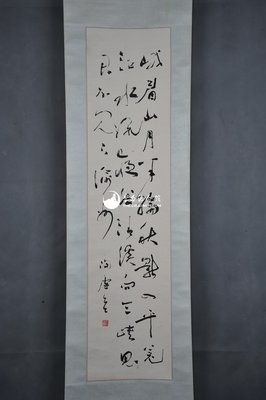 峨眉山月半輪秋影入平羌
江水流夜發清溪向三峽思
君不見下渝州